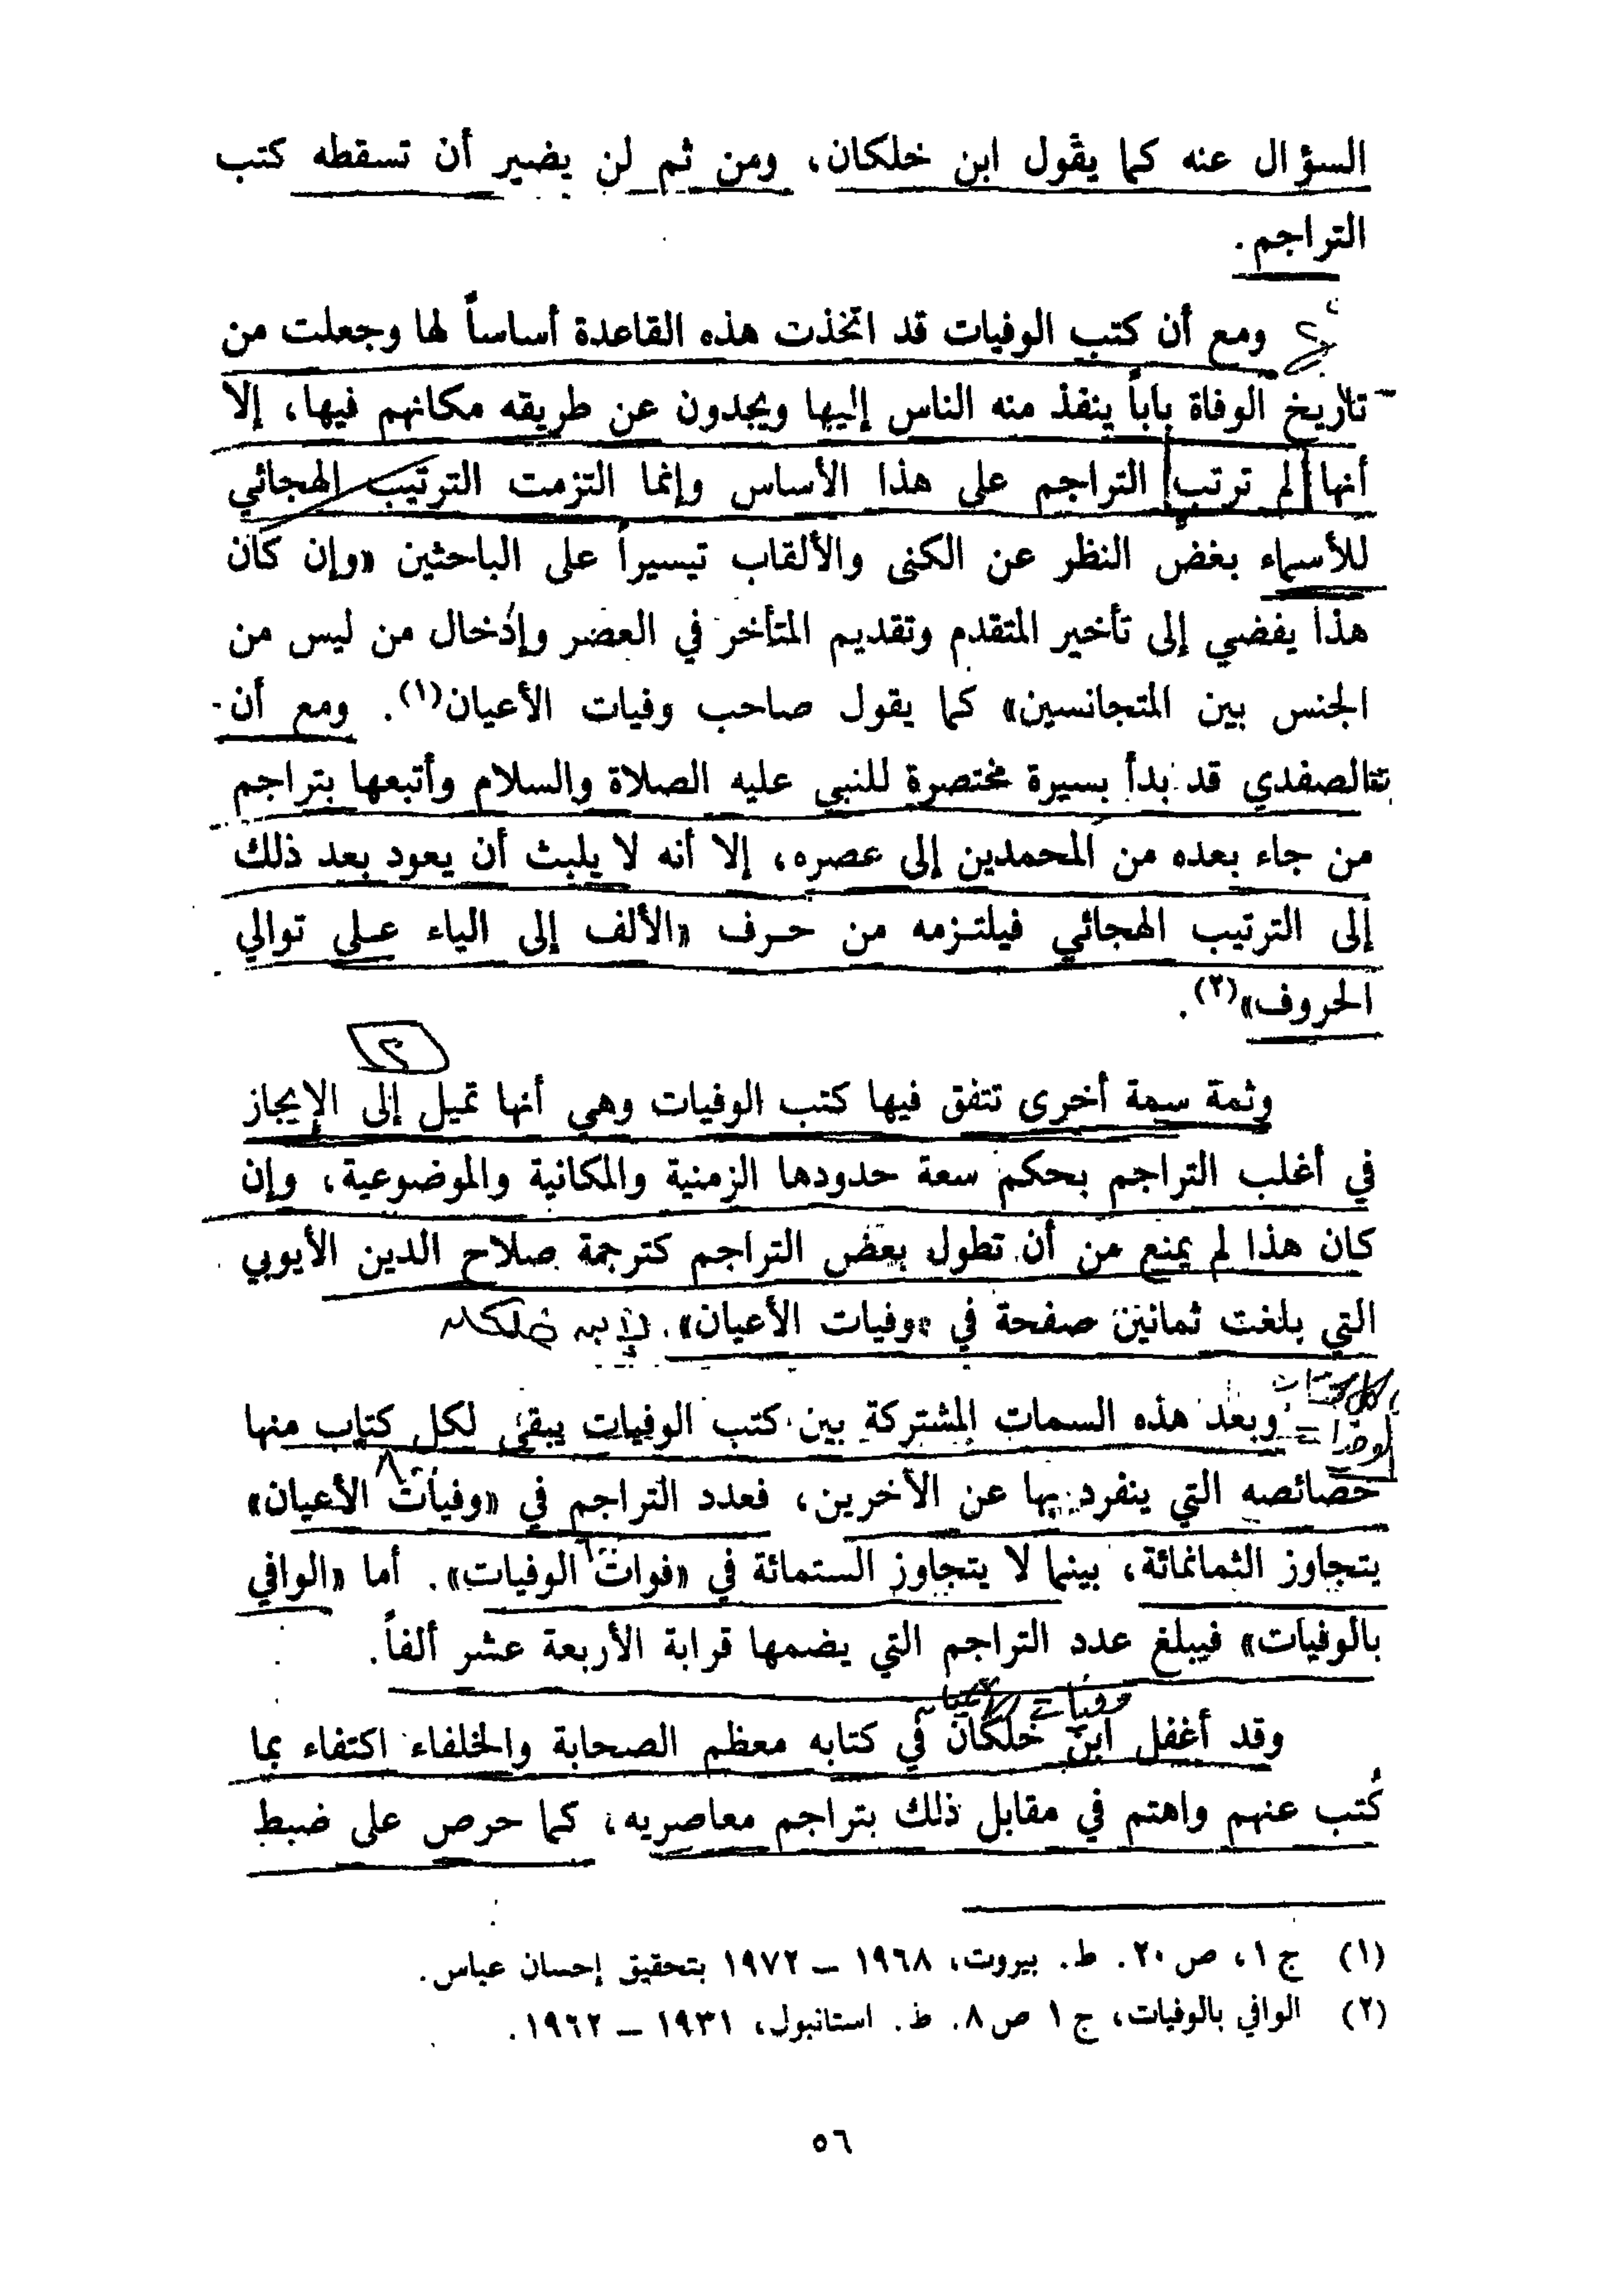 السؤال عنه كما يقول ابن خلكان، ومن ثم لن يضير أن تسقطه كتب
التراجم.
ومع أن كتب الوفيات قد اتخذت هذه القاعدة أساساً لها وجعلت من
تاريخ الوفاة باباً ينفذ منه الناس إليها ويجدون عن طريقه مكانهم فيها، إلا
أنها لم ترتب التراجم على هذا الأساس وإنما التزمت الترتيب الهجائي
للأسماء بغض النظر عن الكنى والألقاب تيسيراً على الباحثين «وإن كان
هذا يفضي إلى تأخير المتقدم وتقديم المتأخر في العصر وإدخال من ليس من
الجنس بين المتجانسين» كما يقول صاحب وفيات الأعيان(١). ومع أن
الصفدي قد بدأ بسيرة مختصرة للنبي عليه الصلاة والسلام وأتبعها بتراجم
من جاء بعده من المحمدين إلى عصره، إلا أنه لا يلبث أن يعود بعد ذلك
إلى الترتيب الهجائي فيلتزمه من حرف «الألف إلى الياء على توالي
الحروف»(٢).
٢
وثمة سمة أخرى تتفق فيها كتب الوفيات وهي أنها تميل إلى الإيجاز
في أغلب التراجم بحكم سعة حدودها الزمنية والمكانية والموضوعية، وإن
كان هذا لم يمنع من أن تطول بعض التراجم كترجمة صلاح الدين الأيوبي
التي بلغت ثمانين صفحة في «وفيات الأعيان». لابن خلكان
وبعد هذه السمات المشتركة بين كتب الوفيات يبقى لكل كتاب منها
خصائصه التي ينفرد بها عن الآخرين، فعدد التراجم في «وفيات الأعيان»
٨٠٠
يتجاوز الثمانمائة، بينما لا يتجاوز الستمائة في «فوات الوفيات». أما «الوافي
٦٠٠
بالوفيات» فيبلغ عدد التراجم التي يضمها قرابة الأربعة عشر ألفاً.
وفيات الأعيان
وقد أغفل ابن خلكان في كتابه معظم الصحابة والخلفاء اكتفاء بما
كُتب عنهم واهتم في مقابل ذلك بتراجم معاصريه، كما حرص على ضبط
(١) ج ١، ص ٢٠. ط. بيروت، ١٩٦٨ – ١٩٧٢ بتحقيق إحسان عباس.
(٢) الوافي بالوفيات، ج ١ ص ٨. ط. استانبول، ١٩٣١ – ١٩٦٢.
٥٦